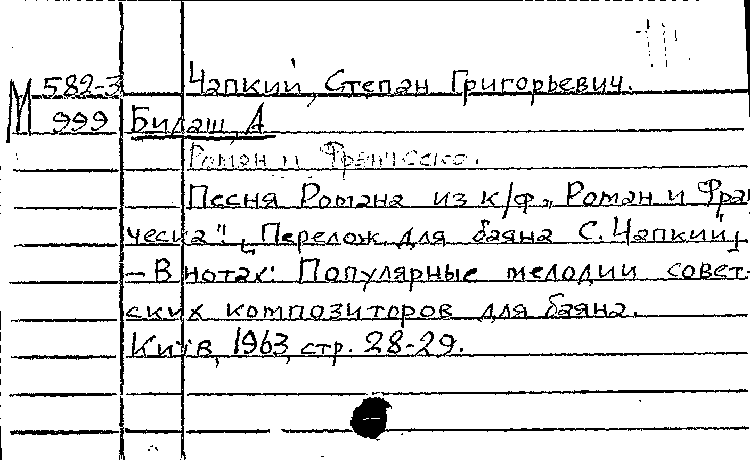 М 582-3 Чапкий, Степан Григорьевич.
999 Билаш, А
Роман и Франческо.
Песня Романа из к/ф „Роман и Фран
ческа". [Перелож. для баяна С. Чапкий]
– В нотах: Популярные мелодии совет-
ских композиторов для баяна.
Київ, 1963, стр. 28-29.